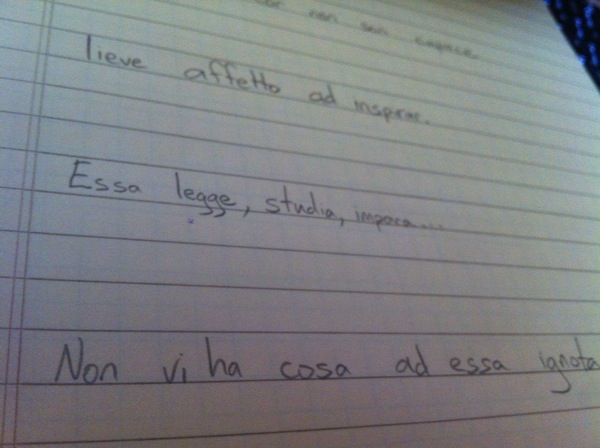 non son capace
lieve affetto ad inspirar.
Essa legge, studia, impara...
Non vi ha cosa ad essa ignota